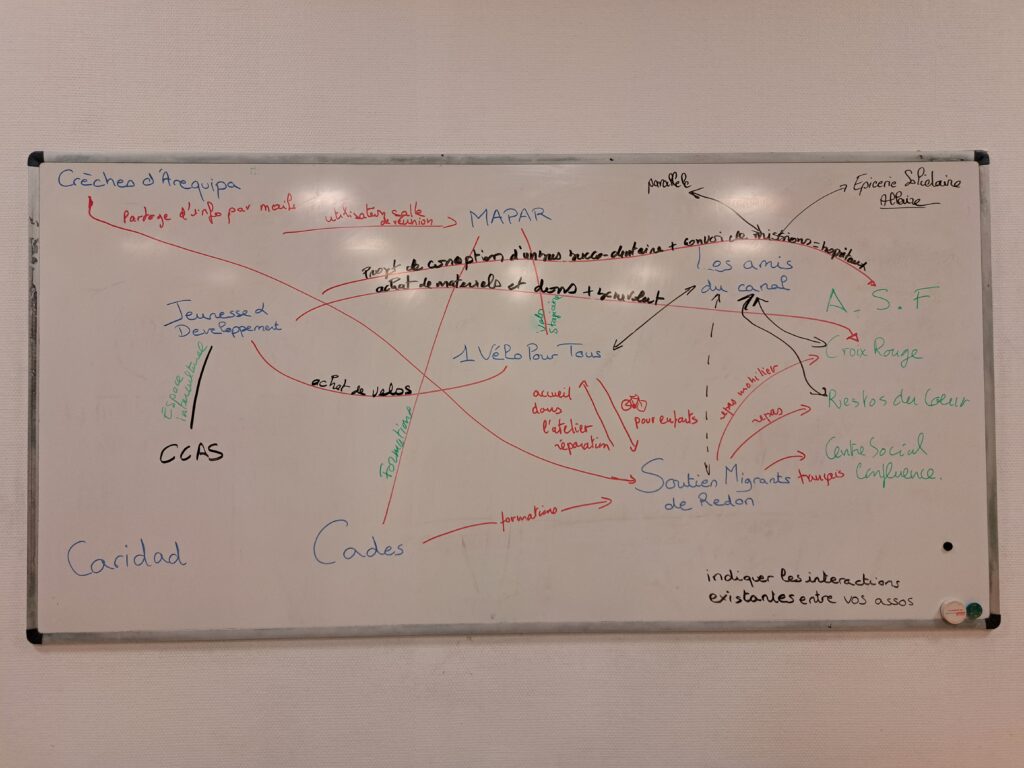 Crèches d'Arequipa
Partage d'info par mails
utilisateur salle
de réunion
MAPAR
parallèle
Epicerie Solidaire
Allaire
Projet de conception d'unités bucco-dentaire + convoi de = hopitaux
achat de materiels et dons + benevolat
Les amis
du canal
A.S.F
Jeunesse &
Developpement
Velo
1 Vélo Pour Tous
Croix Rouge
Espace
interculturel
achat de velos
accueil
dans
l'atelier
réparation
pour enfants
repas mobilier
repas
Restos du Cœur
CCAS
Formations
Soutien Migrants
de Redon
français
Centre Social
Confluence.
formations
Caridad
Cades
indiquer les interactions
existantes entre vos assos